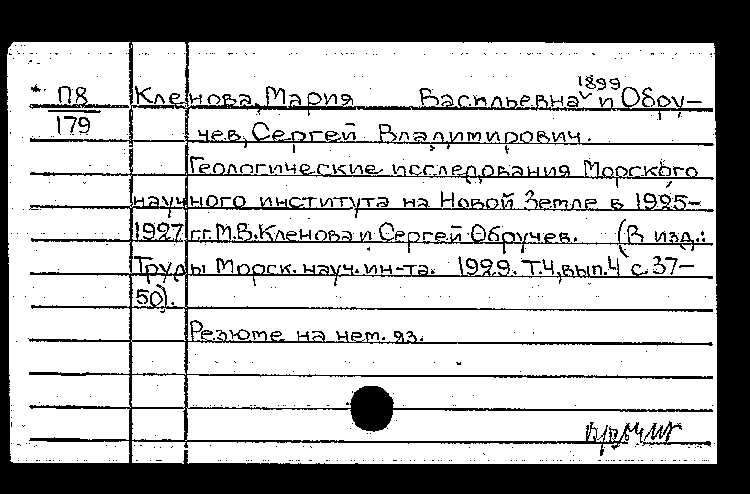 * П8 Кленова, Мария Васильевна 1899 и Обру-
179 чев, Сергей Владимирович.
Геологические исследования Морского
научного института на Новой Земле в 1925-
1927 гг. М.В. Кленова и Сергей Обручев. (В изд.:
Труды Морск. науч. ин-та. 1929. Т.4, вып.4 с. 37-
50).
Резюме на нем. яз.